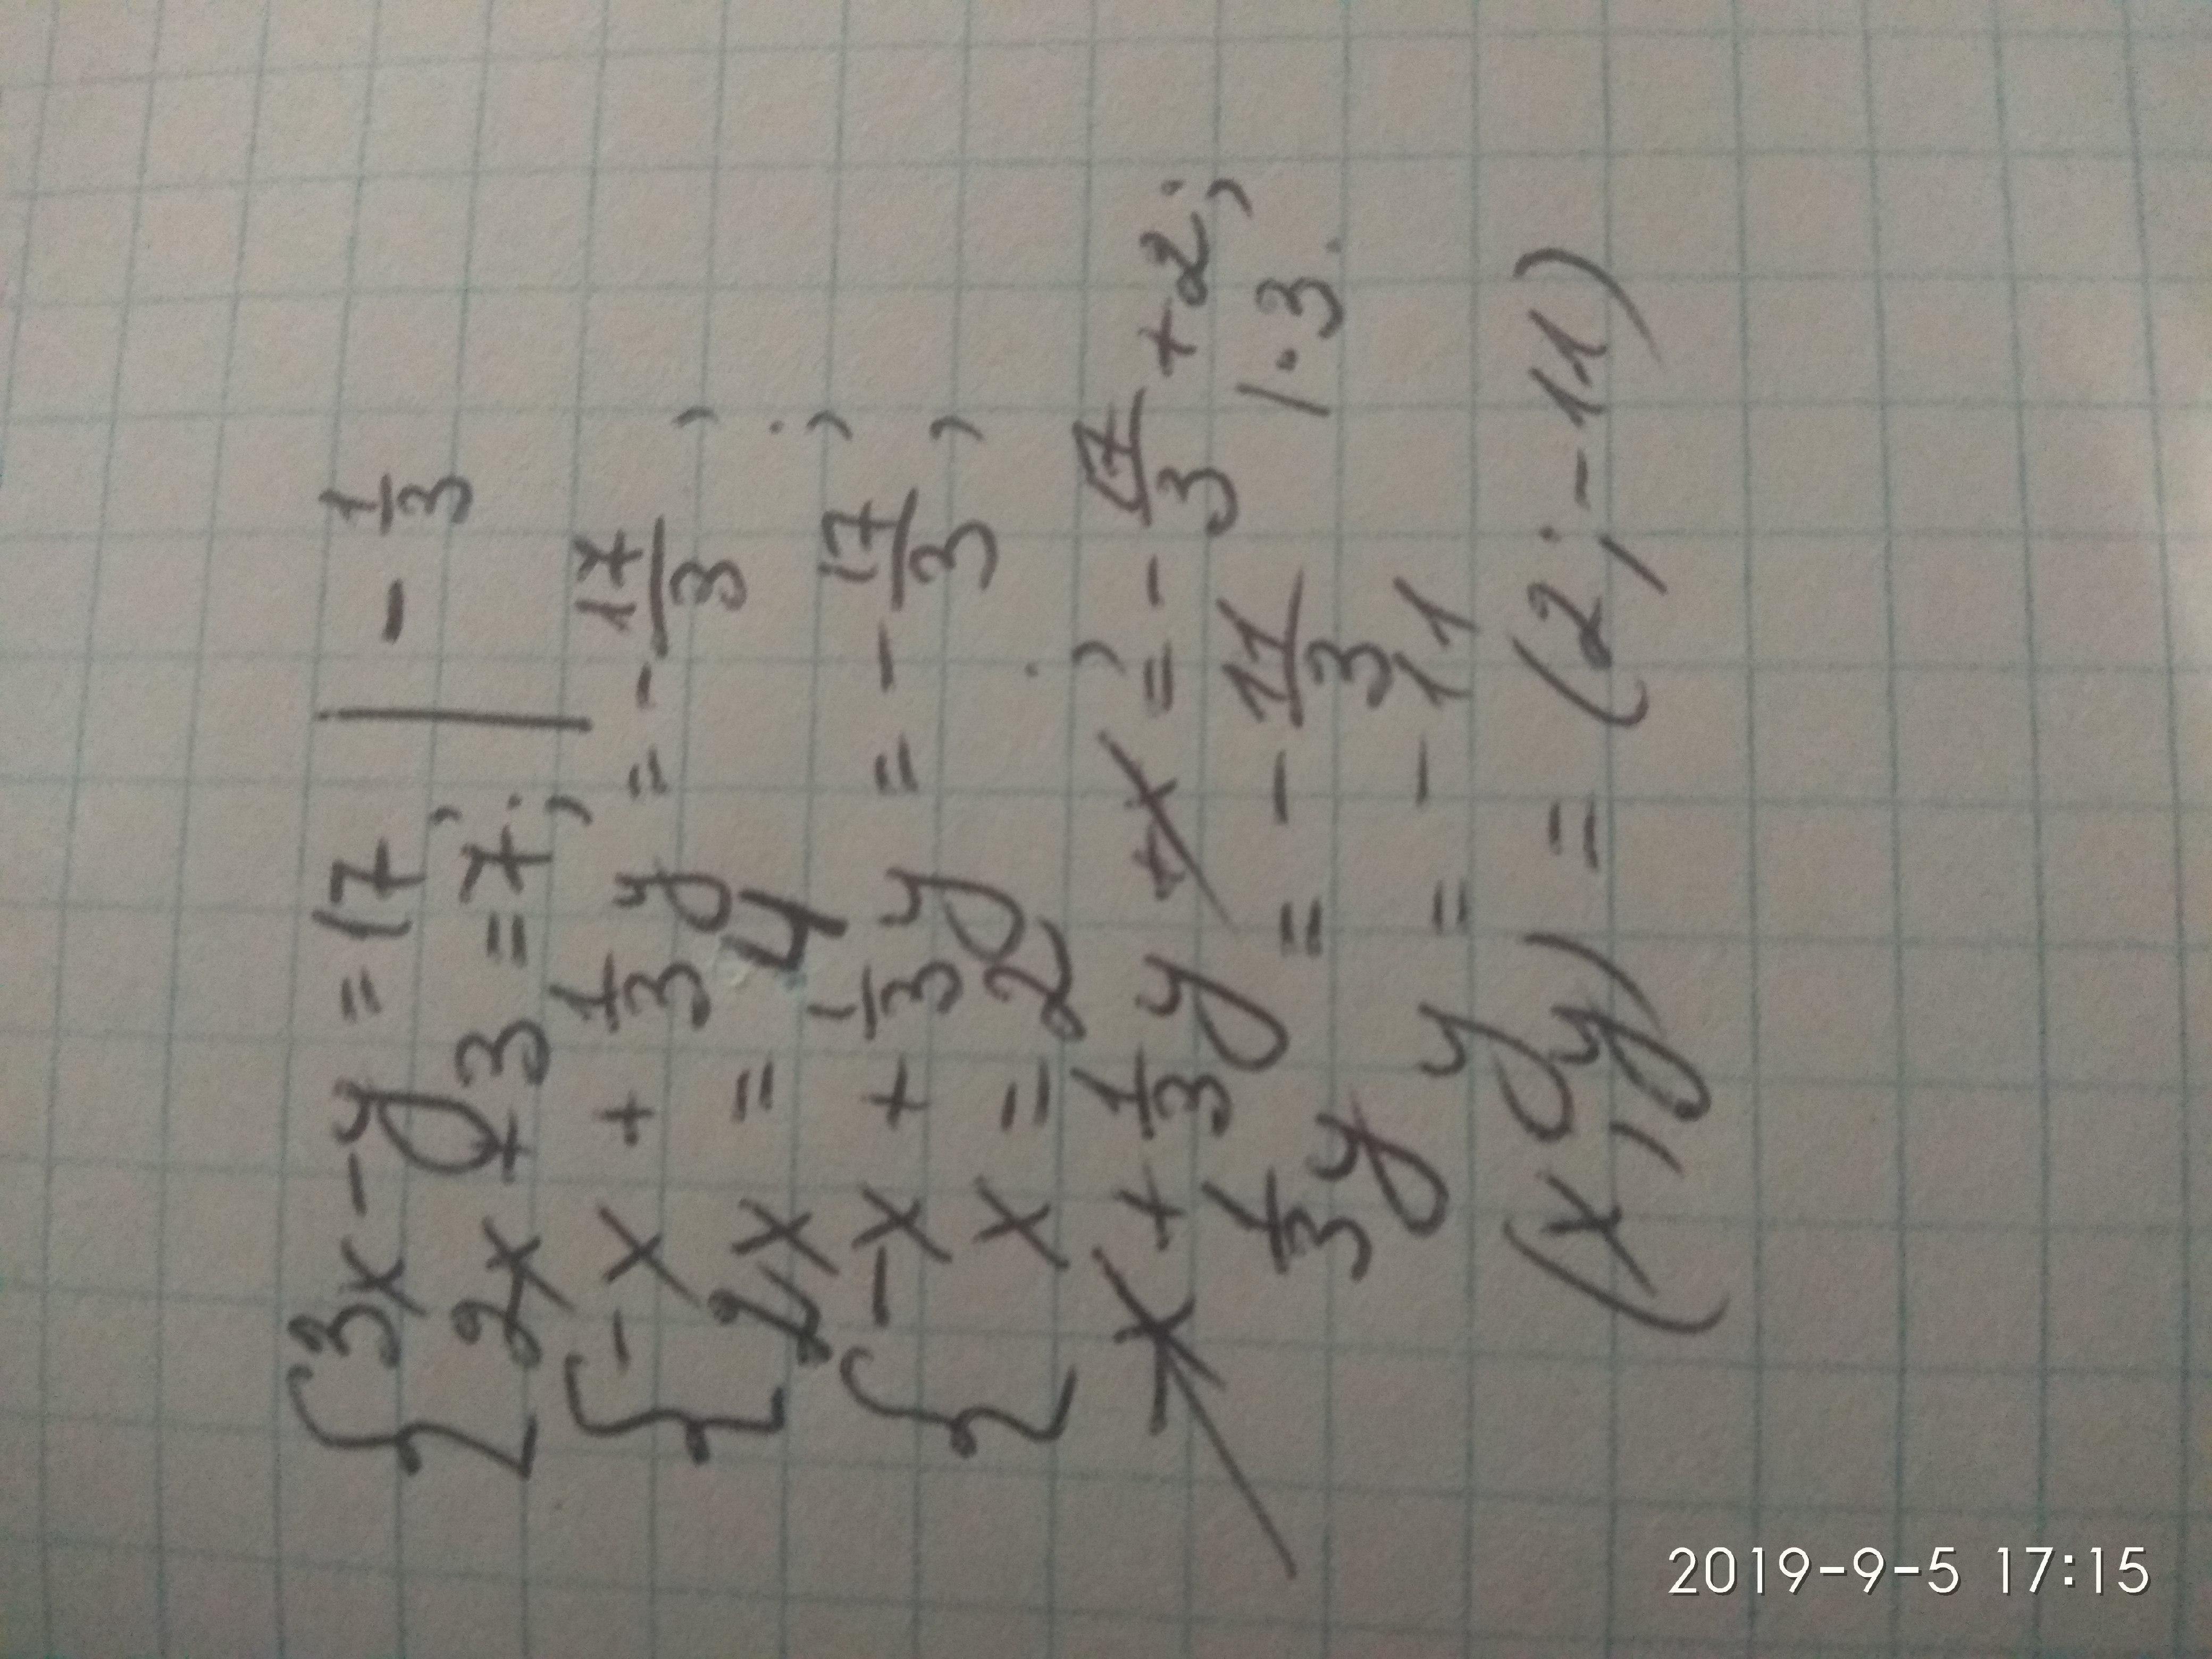 { 3x - y = 17, | - 1/3
2x + 3 = 7;
{ -x + 1/3 y = - 17/3,
2x = 4;
{ -x + 1/3 y = - 17/3,
x = 2;
-x + 1/3 y + x = - 17/3 + 2;
1/3 y = - 11/3 | · 3.
y = - 11
(x, y) = (2; -11)
2019-9-5 17:15